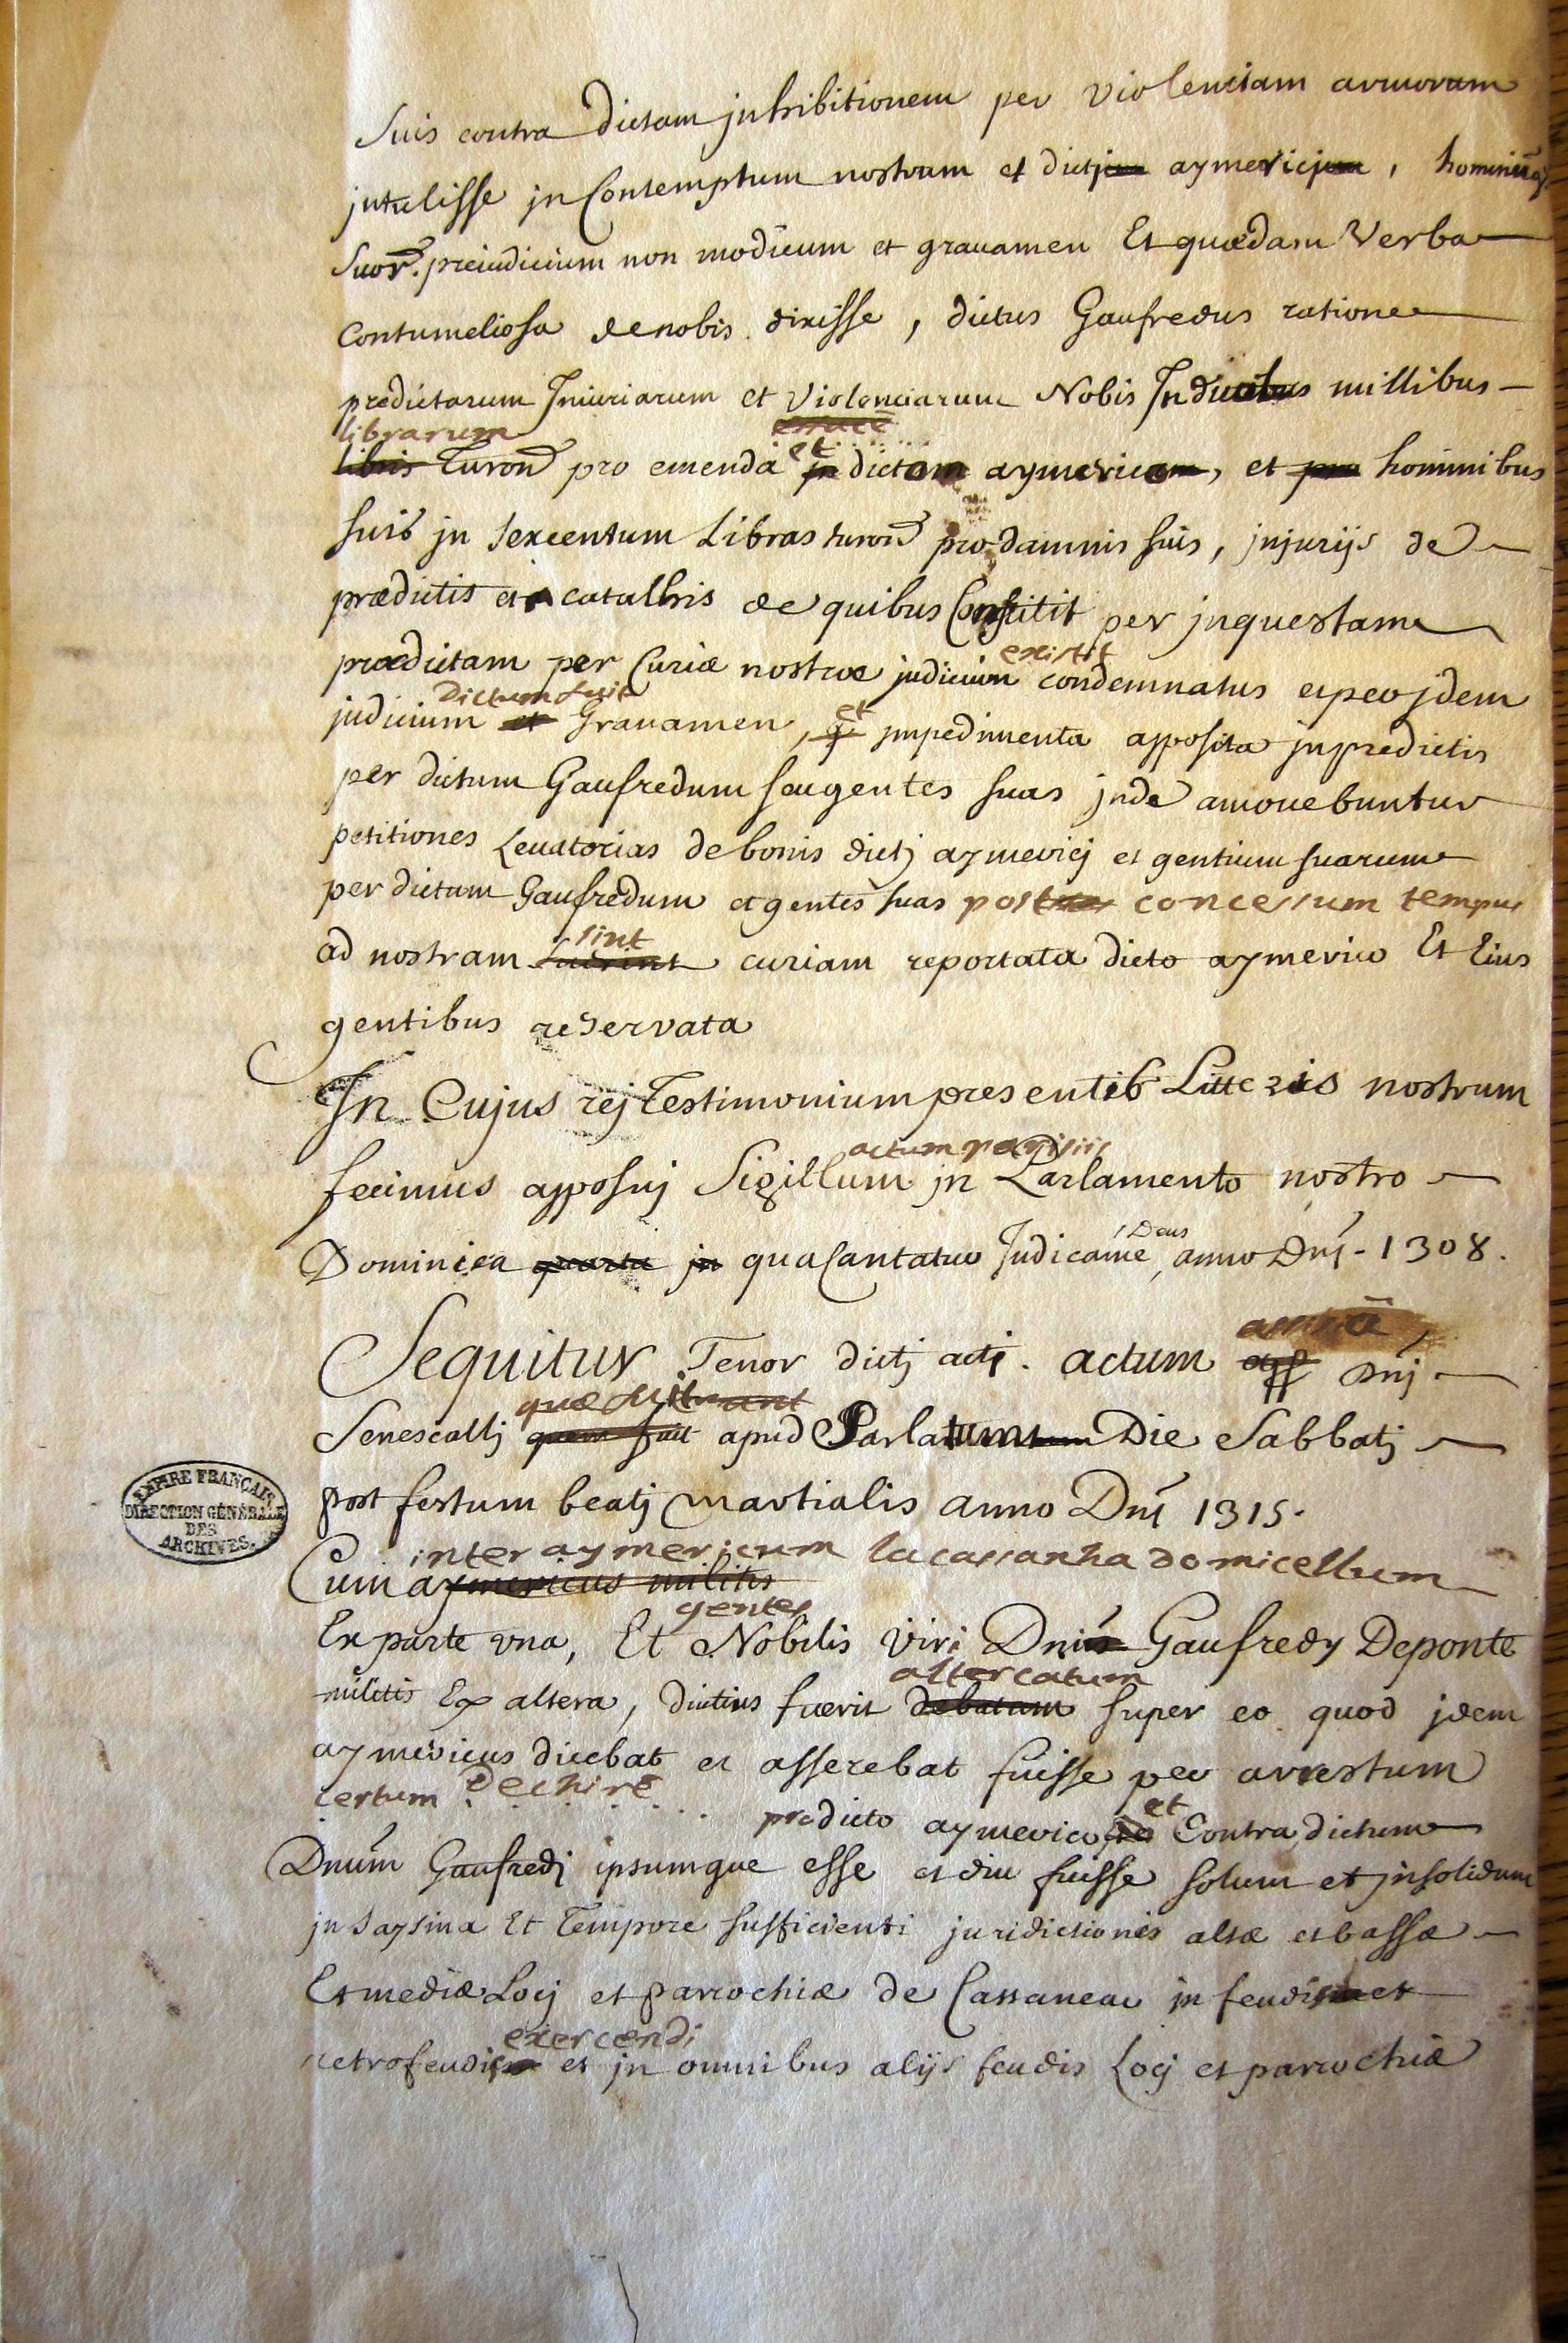 Suis contra dictam jnhibitionem per violentiam armorum
jntulisse jn Contemptum nostrum et dictj aymericj, hominūqʒ
suor. preiudicium non modicum et grauamen Et quædam Verba
Contumeliosa de nobis dixisse, dictus Gaufredus ratione
predictarum Iniuriarum et Violenciarum Nobis In ducibus millibus
librarum
effacé
libris Turon pro emenda et jn dictam aymericom, et pro hominibus
suis jn sexcentum Libras turon pro damnis suis, jnjurijs de
prædictis et catallis de quibus Constitit per jnquestam
existit
prædictam per Curiæ nostræ judicium condemnatus et per jdem
Dictum fuit
judicium et Grauamen, et jmpedimenta apposita jn predictis
per dictum Gaufredum seu gentes suas jnde amouebuntur
petitiones Leuatorias de bonis dictj aymericj et gentium suarum
per dictum Gaufredum et gentes suas post concessum tempus
sint
ad nostram curiam reportata dicto aymerico Et Eius
gentibus reservata
In Cujus rej Testimonium presentib Litteris nostrum
actum parisiis
fecimus apposuj Sigillum jn Parlamento nostro
Deus
Dominica quarta jn qua Cantatur Judicame, anno Dnj - 1308.
Sequitur Tenor dictj acti. actum
assisiæ
app Dnj
quæ
Senescallj quem fuit apud Die Sabbatj
post festum beatj martialis anno Dnj 1315.
inter aymericum lacassanha domicellum
Cum aymericus militis
gentes
Ex parte vna, Et Nobilis viri Dni Gaufredy Deponte
altercatum
militis Ex altera, diutius fuerit debatum super eo quod jdem
aymericus dicebat et asserebat fuisse per arrestum
certum Dechiré . . . . . . predicto aymerico et Contra dictum
Dnum Gaufredj ipsumque esse et diu fuisse solum et jnsolidum
jn saysina Et Tempore sufficienti juridictionis altæ et bassæ
Et mediæ Locj et parrochiæ de Cassaneau jn feudis et
exercendi
retrofeudis et jn omnibus alijs feudis Locj et parrochiæ
EMPIRE FRANÇAIS
DIRECTION GÉNÉRALE
DES
ARCHIVES.